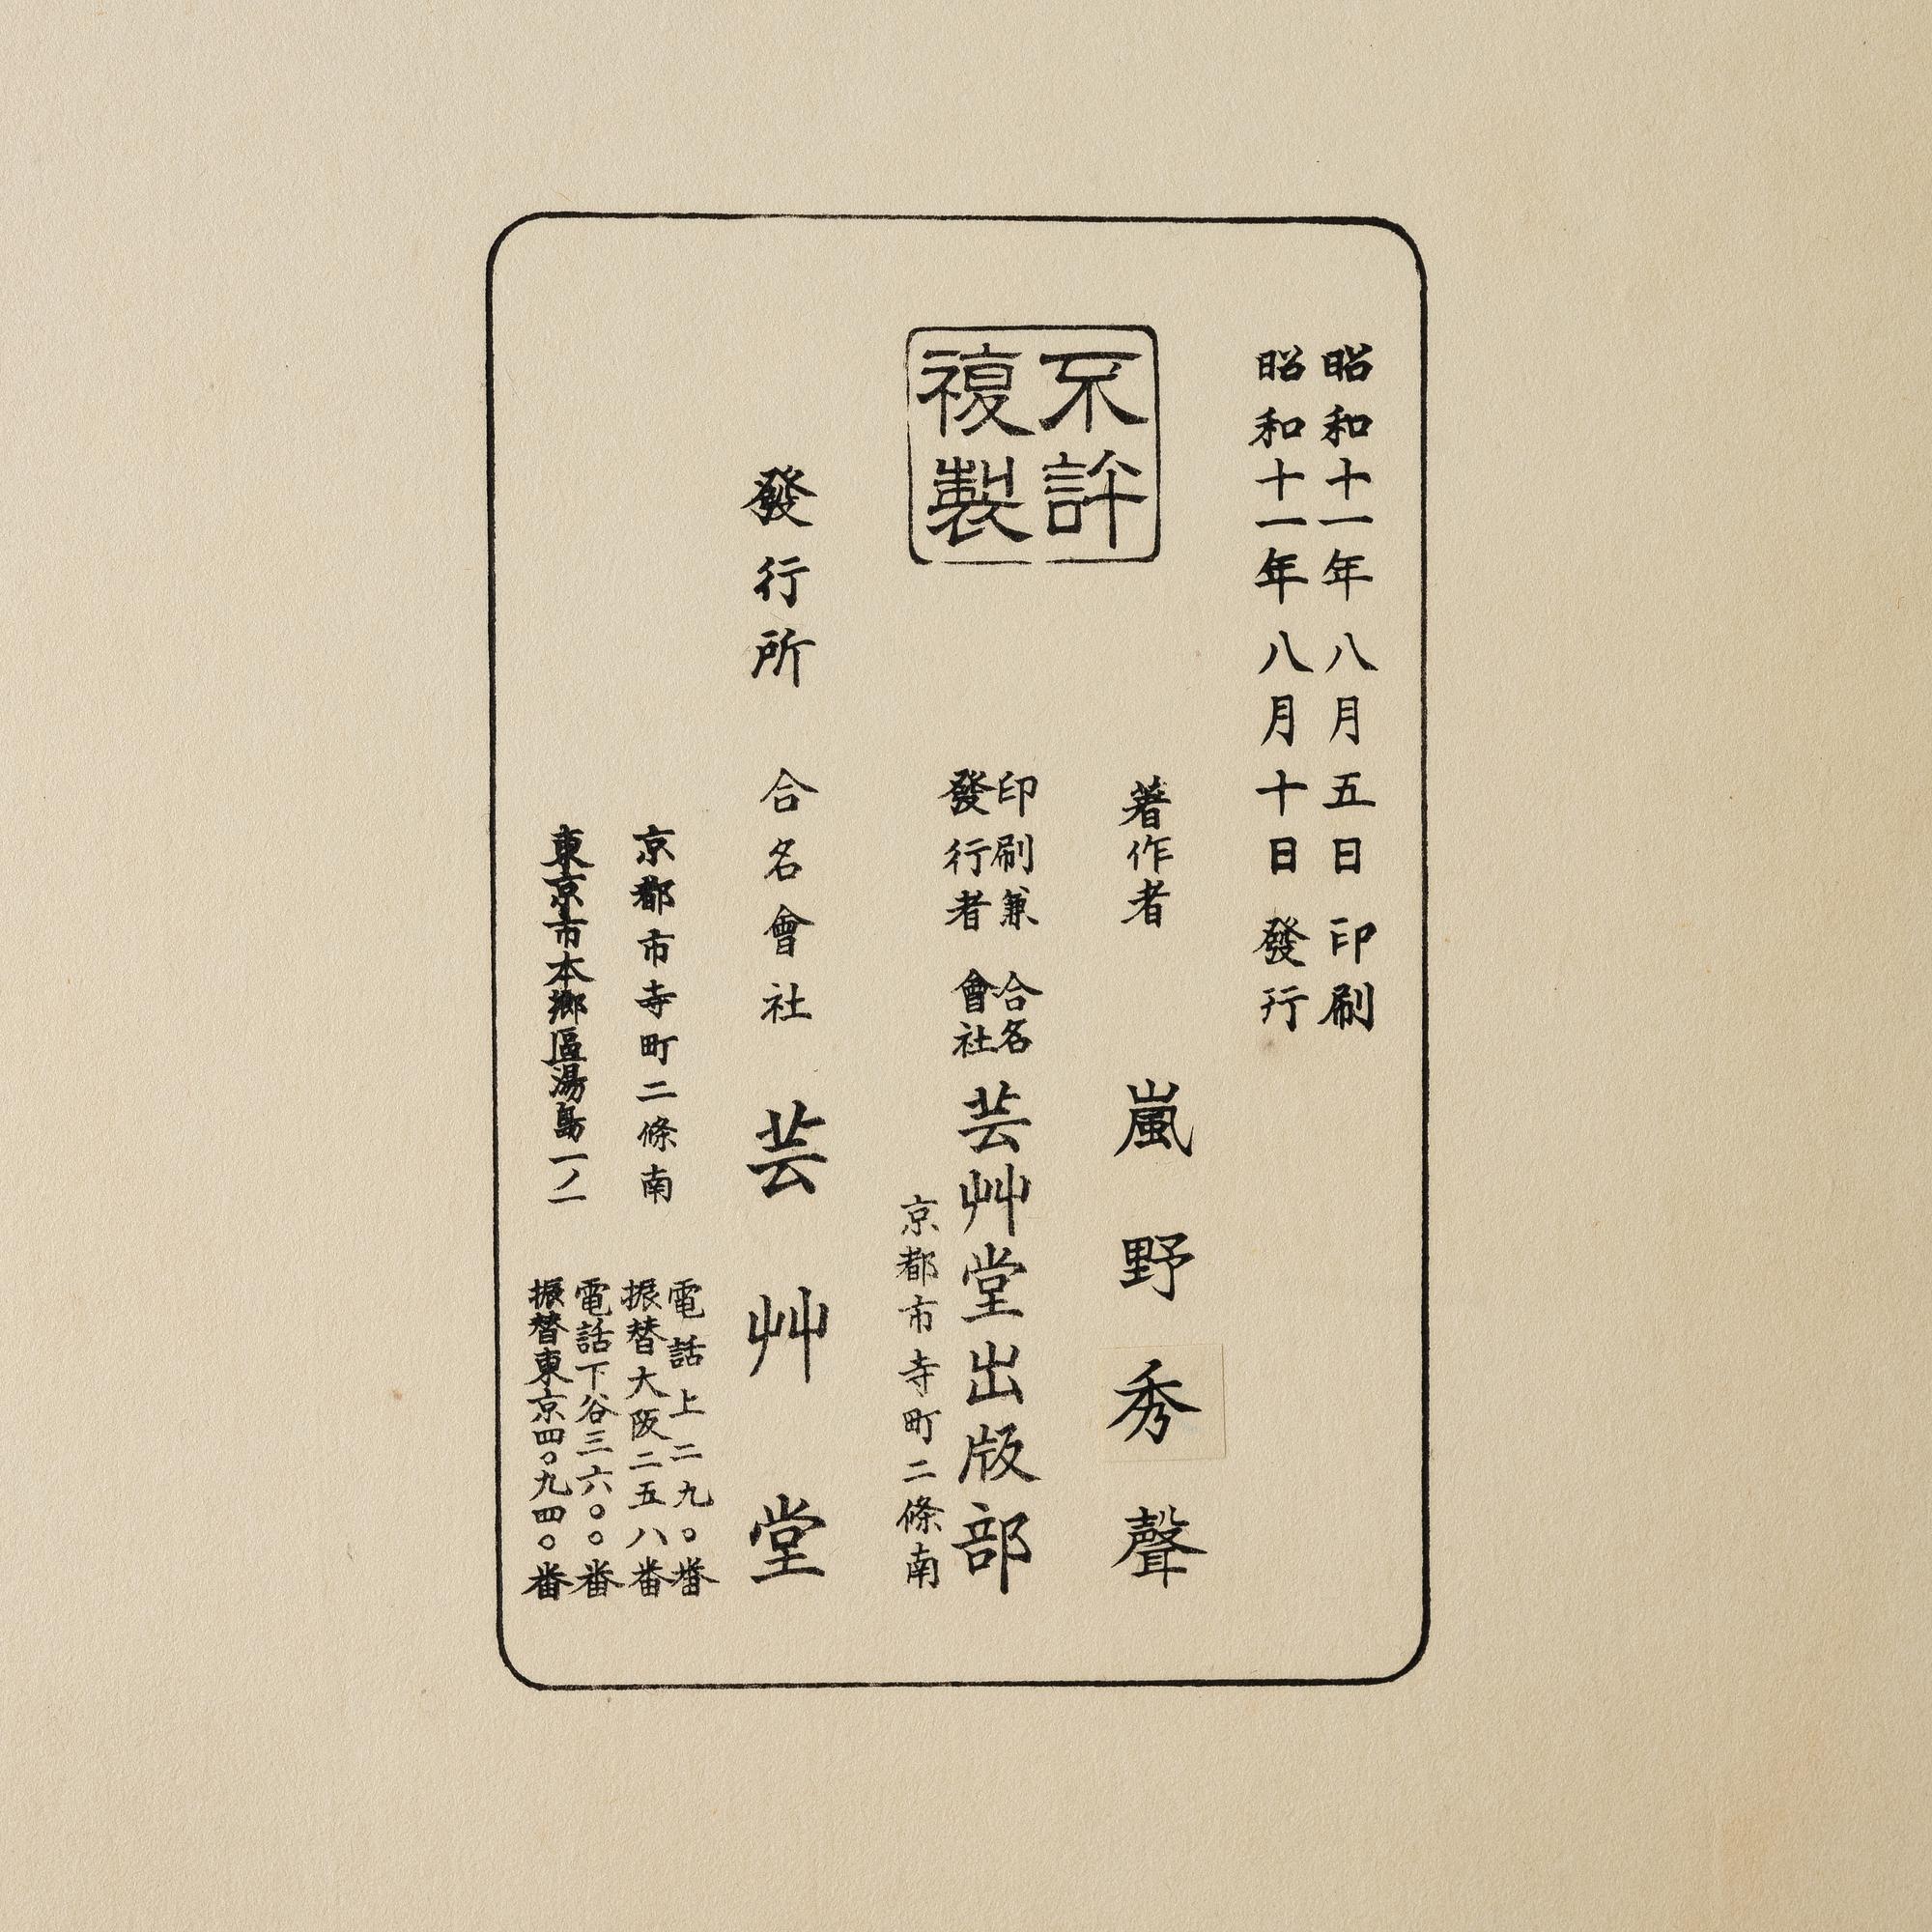 昭和十一年八月五日印刷
昭和十一年八月十日發行
不許
複製
著作者 嵐野秀聲
印刷兼
發行者
合名
會社
芸艸堂出版部
京都市寺町二條南
發行所 合名會社 芸艸堂
京都市寺町二條南
電話上二九〇番
振替大阪二五八番
東京市本郷區湯島一ノ一
電話下谷三六〇〇番
振替東京四〇九四〇番